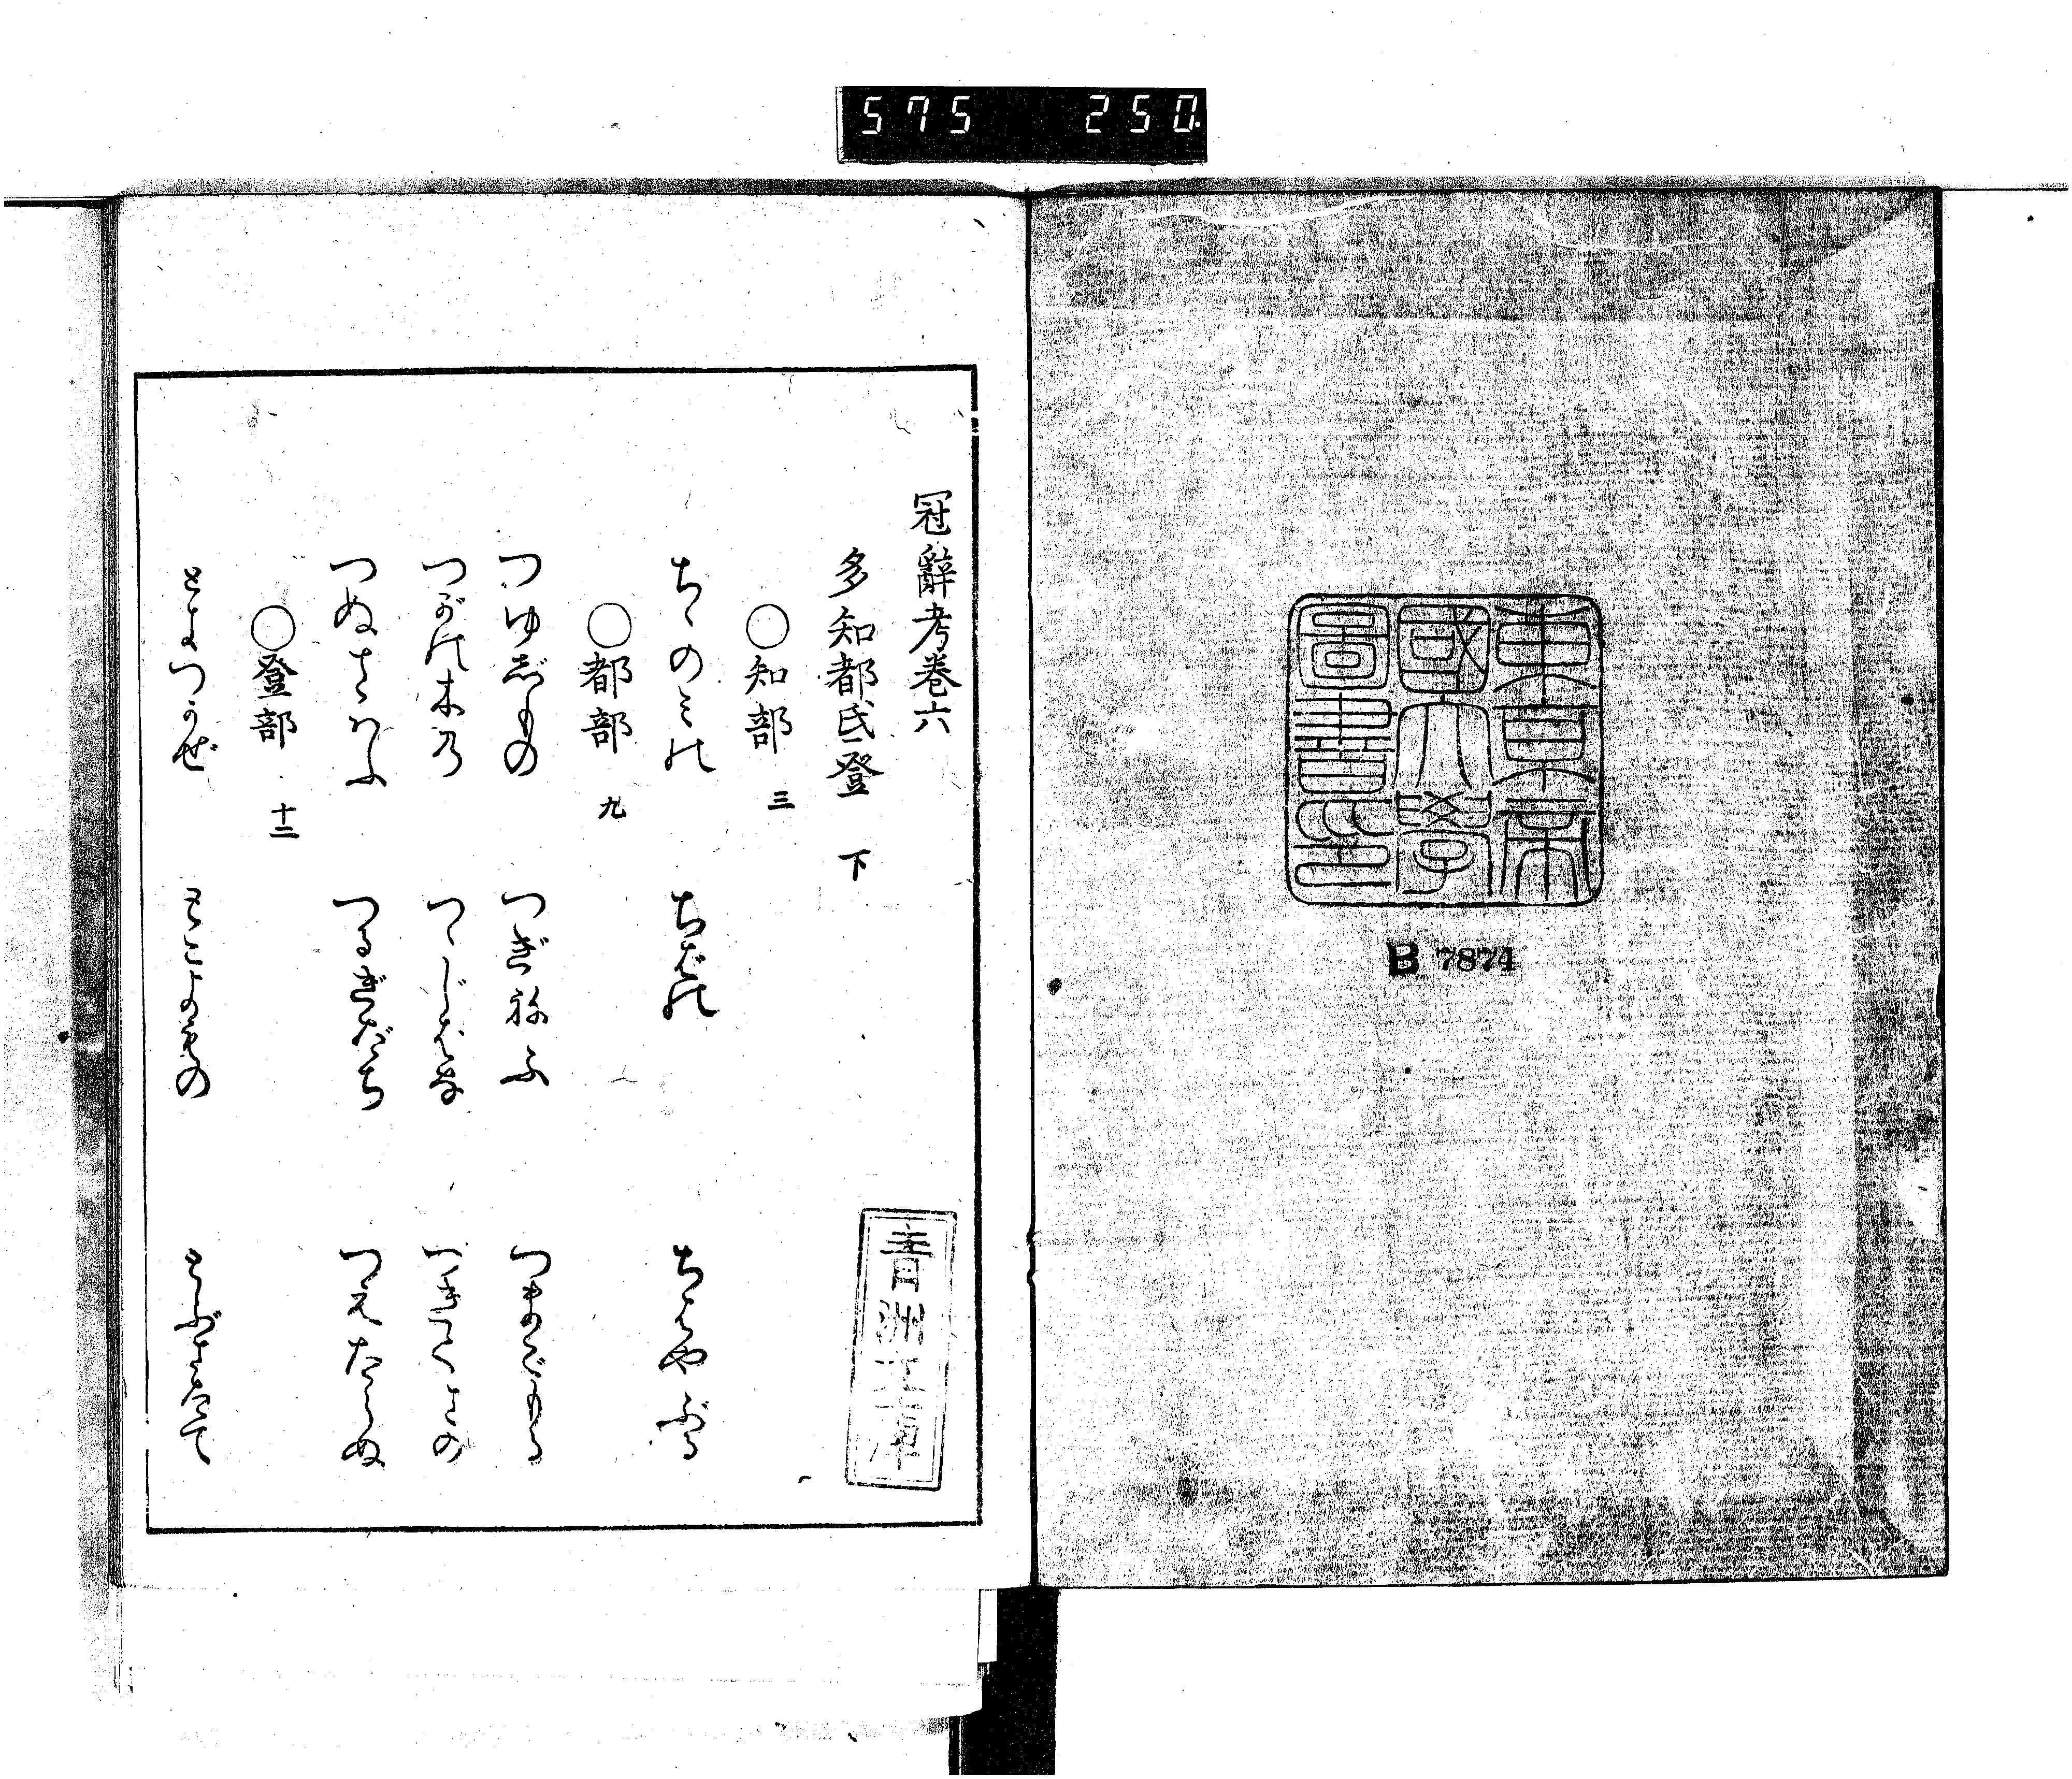 575 250
東京帝
國大學
圖書印
B 7874
冠辭考巻六
多知都氐登 下
○知部 三
ちゝのみの ちばの ちはやぶる
○都部 九
つゆじもの つぎねふ つまごもる
つがの木の つゝじばな つきくさの
つぬさはふ つるぎだち つえたらぬ
○登部 十二
ときつかぜ とこよもの とぶさたて
青洲文庫